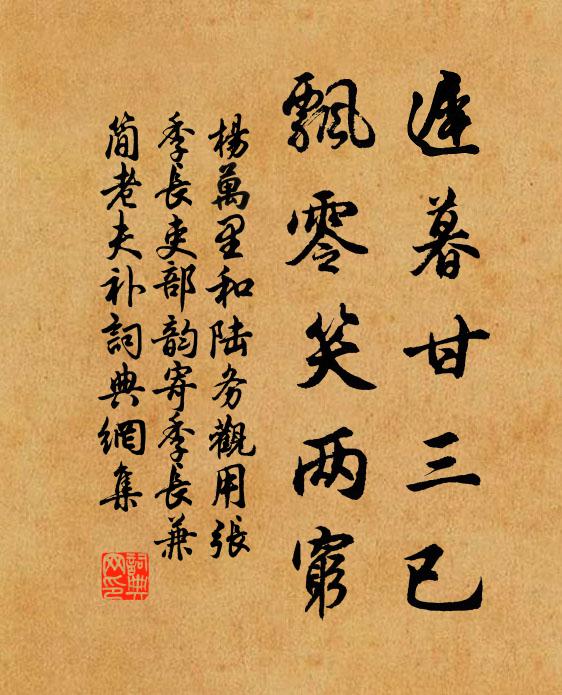 遲暮甘三已
飄零笑两窮
楊萬里和陆务觀用張
季長吏部韵寄季長兼
简老夫补詞典網集
詞典
网印